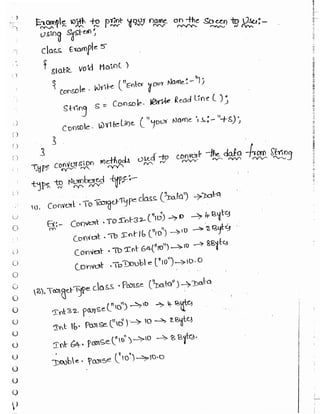 Example with to print your name on the Screen to User:-
using System;
class Example 5
{
static void Main( )
{
Console . Write ("Enter your Name:-");
String S = Console. Read Line ( );
Console. WriteLine ( "your Name is:-"+S);
}
}
Type conversion methods used to convert the data from String
type to Numbered type:-
1). Convert . To TargetType class ("Data") → Data
Ex:- Convert . To Int32 ("10") → 10 → 4 Bytes
Convert . To Int 16 ("10") → 10 → 2 Bytes
Convert . To Int 64("10") → 10 → 8Bytes
Convert . ToDouble ("10") → 10.0
(2). TargetType class . Parse ("Data") → Data
Int 32. parse("10") → 10 → 4 Bytes
Int 16. Parse("10") → 10 → 2 Bytes
Int 64. Parse("10") → 10 → 8 Bytes.
Double . Parse ("10") → 10.0